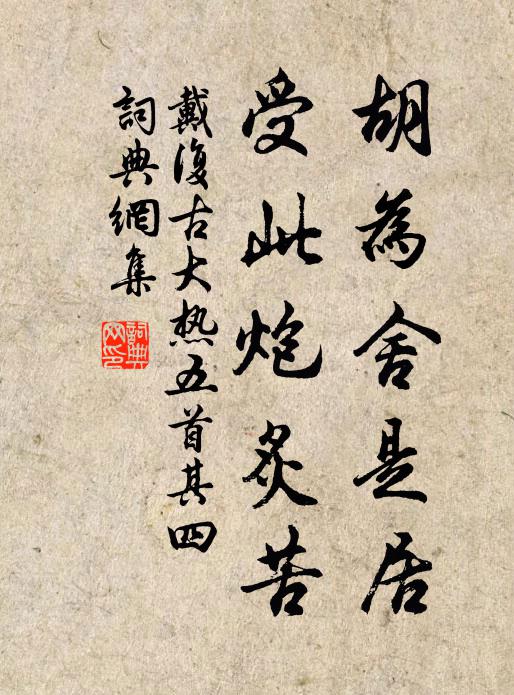 胡為舍是居
受此炮炙苦
戴復古大热五首其四
詞典網集
詞典網印